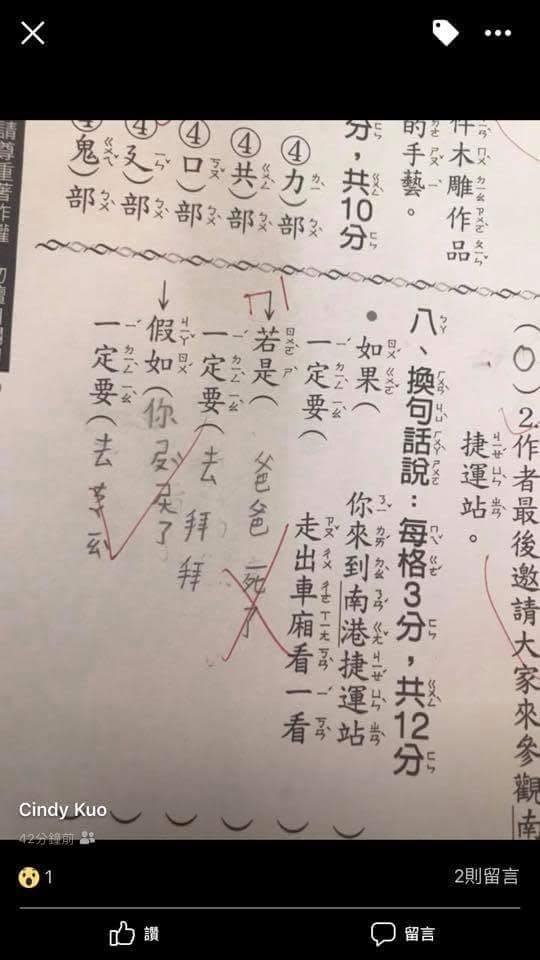 件木雕作品
的手藝。
分，共10分
④力）部
④共）部
④口）部
④廴）部
④鬼）部
請尊重著作權
（○）2.作者最後邀請大家來參觀南
捷運站。
八、換句話說：每格3分，共12分
如果（你來到南港捷運站）
一定要（走出車廂看一看）
若是（爸爸死了）
一定要（去拜拜）
假如（你 了）
一定要（去
Cindy Kuo
42分鐘前
1
2則留言
讚
留言